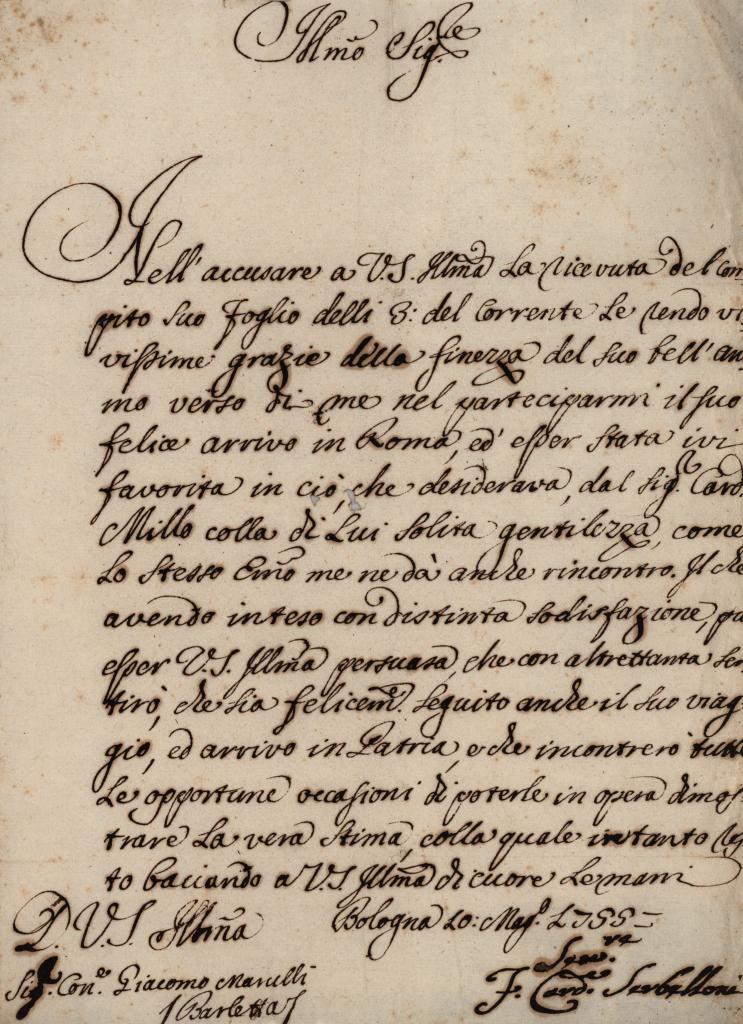 Illmo Sig.re
Nell' accusare a V.S. Illma La ricevuta del com
pito suo Foglio delli 3: del Corrente Le rendo vi
vissime grazie della finezza del suo bell' ani
mo verso di me nel parteciparmi il suo
felice arrivo in Roma, ed' esser stata ivi
favorita in ciò, che desiderava, dal Sig.r Card.
Millo colla di Lui solita gentilezza, come
Lo stesso Emo me ne dà anche rincontro. Il che
avendo inteso con distinta sodisfazione, può
esser V.S. Illma persuasa, che con altrettanta sen
tirò, che sia felicem.e seguito anche il suo viag
gio, ed arrivo in Patria, e che incontrerò tutte
Le opportune occasioni di poterle in opera dimos
trare La vera stima, colla quale intanto res
to baciando a V.S. Illma di cuore Le mani
D. V.S. Illma Bologna 10: Mag.o 1755
Sig.r Con.e Giacomo Marulli
/ Barletta /
Serv.re
F. Card. Serbelloni